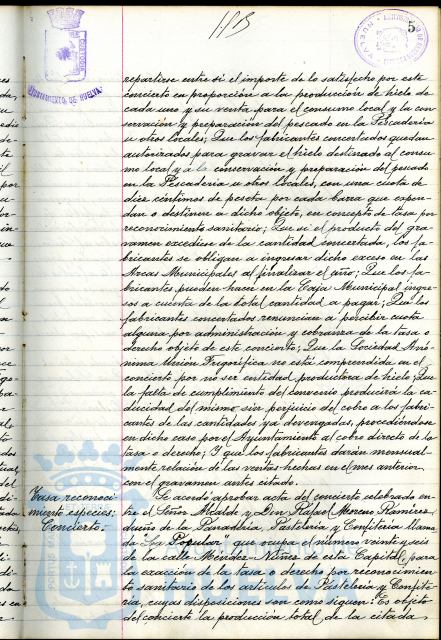 5
AYUNTAMIENTO DE HUELVA
repartirse entre si el importe de lo satisfecho por este
concierto en proporción a la producción de hielo de
cada uno y su venta para el consumo local y la con-
servación y preparación del pescado en la Pescaderia
u otros locales; Que los fabricantes concertados quedan
autorizados para gravar el hielo destinado al consu-
mo local y a la conservación y preparación del pescado
en la Pescaderia u otros locales, con una cuota de
diez céntimos de peseta por cada barra que expen-
dan o destinen a dicho objeto, en concepto de tasa por
reconocimiento sanitario; Que si el producto del gra-
vamen excediese de la cantidad concertada, los fa-
bricantes se obligan a ingresar dicho exceso en las
Arcas Municipales al finalizar el año; Que los fa-
bricantes pueden hacer en la Caja Municipal ingre-
sos a cuenta de la total cantidad a pagar; Que los
fabricantes concertados renuncian a percibir cuota
alguna por administración y cobranza de la tasa o
derecho objeto de este concierto; Que la Sociedad Anó-
nima Unión Frigorífica no está comprendida en el
concierto por no ser entidad productora de hielo; Que
la falta de cumplimiento del convenio producirá la ca-
ducidad del mismo sin perjuicio del cobro a los fabri-
cantes de las cantidades ya devengadas, procediéndose
en dicho caso por el Ayuntamiento al cobro directo de la
tasa o derecho; Y que los fabricantes darán mensual-
mente relación de las ventas hechas en el mes anterior
con el gravamen antes citado.
Tasa reconoci-
miento especies:
Concierto.-
Se acordo aprobar acta del concierto celebrado en-
tre el Señor Alcalde y Don Rafael Moreno Ramirez
dueño de la Panaderia, Pasteleria y Confiteria llama-
da "La Popular", que ocupa el número veinte y seis
de la calle Méndez-Núñez de esta Capital, para
la exacción de la tasa o derecho por reconocimien-
to sanitario de los articulos de Pasteleria y Confite-
ria, cuyas disposiciones son como siguen: Es objeto
del concierto la producción total de la citada